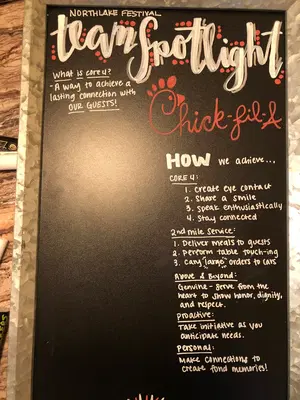 NORTHLAKE FESTIVAL
team Spotlight
What is core 4?
- A way to achieve a
lasting connection with
OUR GUESTS!
Chick-fil-A
HOW we achieve...
CORE 4:
1. Create eye contact
2. Share a smile
3. Speak enthusiastically
4. Stay connected
2nd mile Service:
1. Deliver meals to guests
2. Perform table touch-ing
3. Cary (large) orders to cars
Above & Beyond:
Genuine - Serve from the
heart to show honor, dignity,
and respect.
Proactive:
Take initiative as you
anticipate needs.
Personal:
Make connections to
create fond memories!